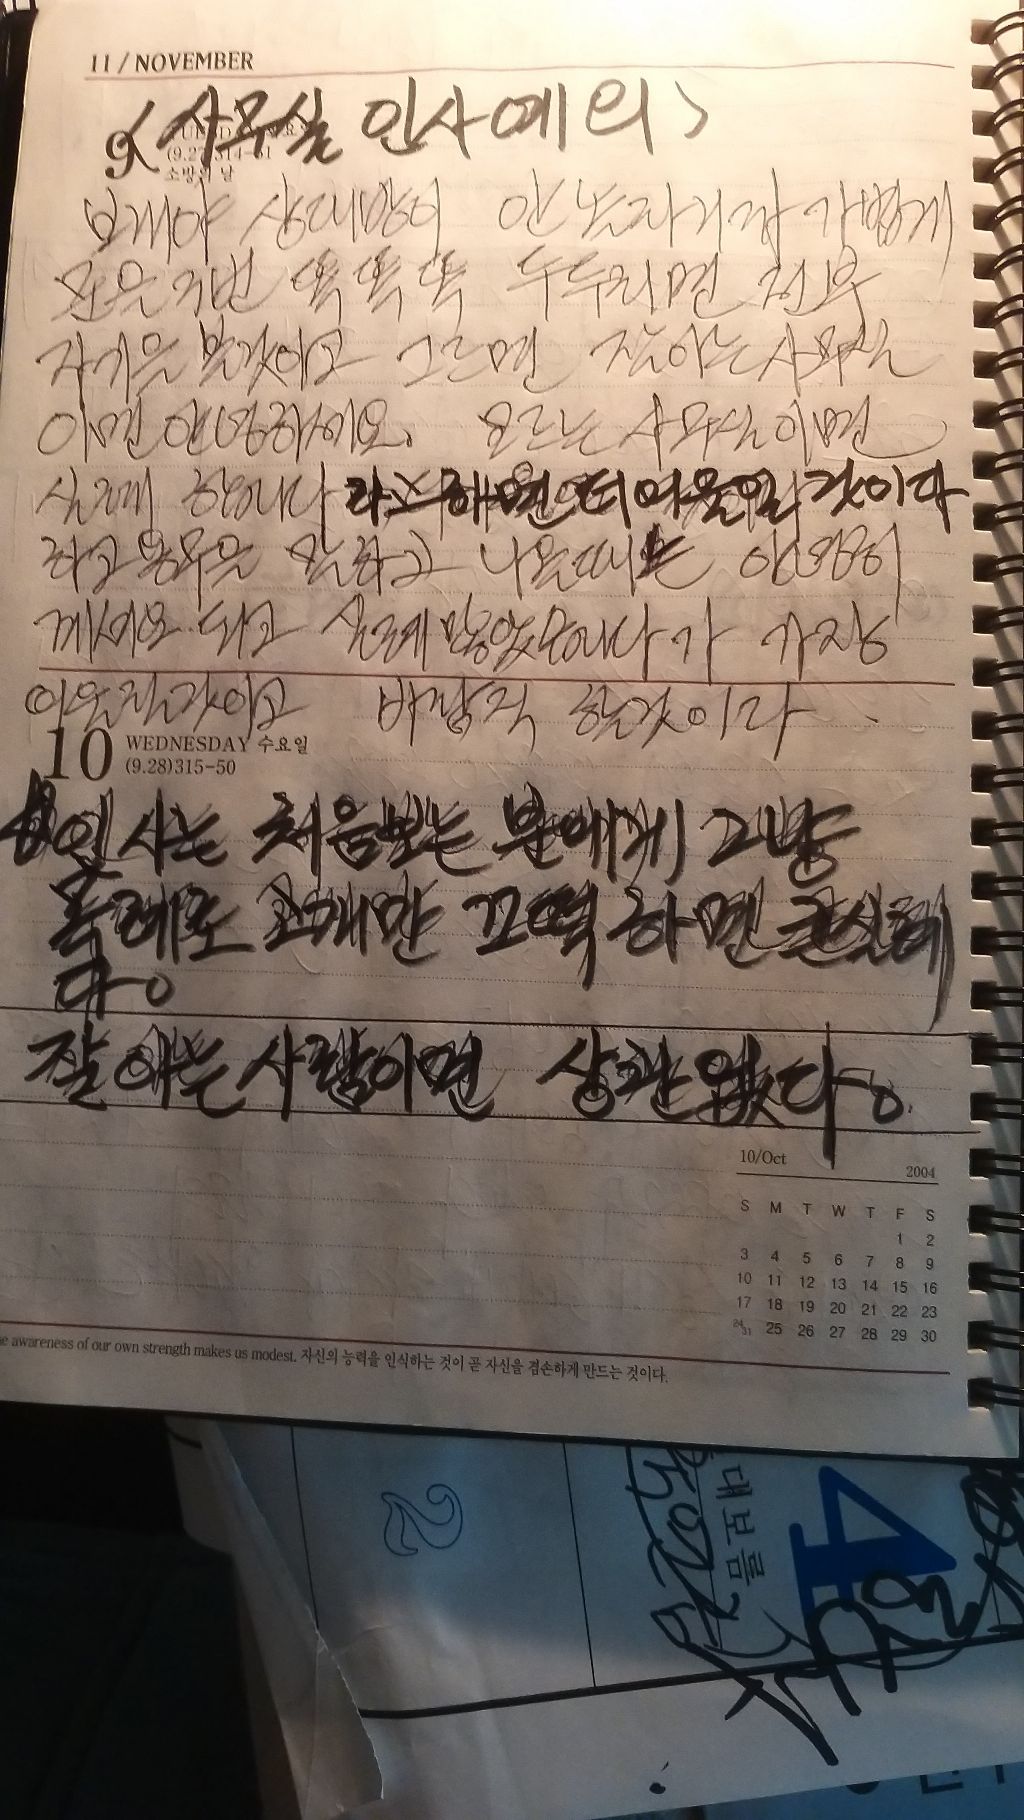 11 / NOVEMBER
<사무실 인사예의>
9
소방의 날
상대방이 안 놀라게끔 가볍게
문을 3번 똑 똑 똑 두두리면 전부
자기를 볼것이고 그르면 잘아는 사무실
이면 안녕하세요. 모르는 사무실이면
실례 합니다 라고 해면 더 어울일 것이다
하고 용무을 말하고 나올때는 안영히
께세요 하고 실례 많았습니다 가 가장
어울릴것이고 바람직 할것이다.
10 WEDNESDAY 수요일
(9.28)315-50
인사는 처음보는 분에게 그냥
고개만 끄떡 하면 큰실례
다。
잘 아는 사람이면 상관 없다。
10/Oct 2004
S M T W T F S
1 2
3 4 5 6 7 8 9
10 11 12 13 14 15 16
17 18 19 20 21 22 23
24/31 25 26 27 28 29 30
awareness of our own strength makes us modest. 자신의 능력을 인식하는 것이 곧 자신을 겸손하게 만드는 것이다.
2
대보름
4